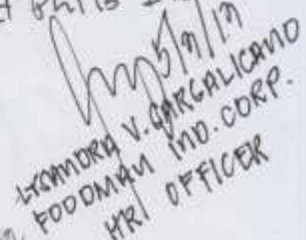 5/9/17
LYSANDRA V. GARGALICANO
FOODMAN IND. CORP.
HR OFFICER